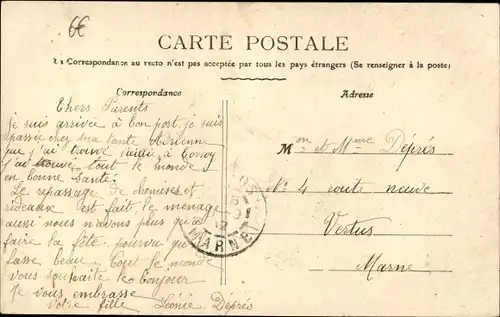 6€
CARTE POSTALE
La Correspondance au recto n'est pas acceptée par tous les pays étrangers (Se renseigner à la poste)
Correspondance
Chers Parents
je suis arrivée à bon port, je suis
passée chez ma tante Adrienne
que j'ai trouvé,
j'ai trouvé tout le monde
en bonne santé
Le repassage de chemises et
rideaux est fait le menage
aussi nous n'avons plus qu'à
faire la fête, pourvu qu'il
fasse beau. Tout le monde
vous souhaite le bonjour
Je vous embrasse
Votre fille Léonie Déprés
Adresse
Mon et Mme Déprés
No 4 route neuve
Vertus
Marne
MARNE